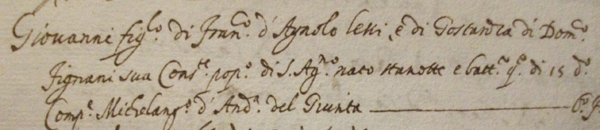 Giovanni fig.lo di Fran.co d'Agnolo Letti, e di Gostanza di Dom.co
Tignani sua Cons.te pop.o di S. Ag.no nato stanotte e batt.o q.o di 15 d.o
Comp.e Michelang.o d'And.a del Giunta